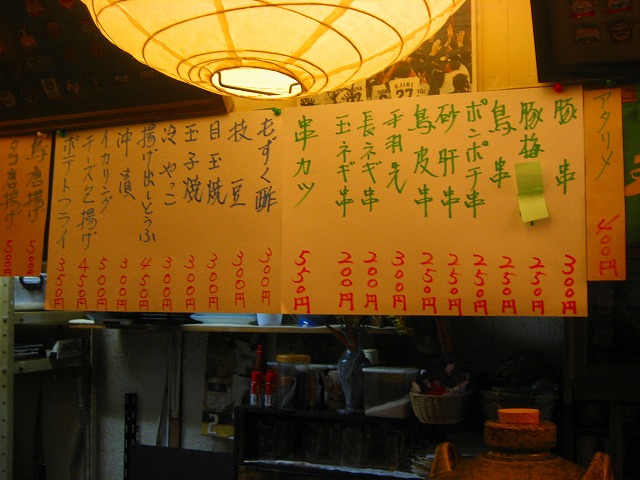 アタリメ 400円
豚串 300円
豚梅 250円
鳥串 250円
ポンポチ串 250円
砂肝串 250円
鳥皮串 250円
手羽先 300円
長ネギ串 200円
玉ネギ串 200円
串カツ 550円
もずく酢 300円
枝豆 300円
目玉焼 300円
玉子焼 300円
冷やっこ 300円
揚げ出しとうふ 450円
沖漬 300円
イカリング 500円
チーズ包揚げ 450円
ポテトフライ 350円
鳥唐揚げ 500円
唐揚げ 500円
27
2